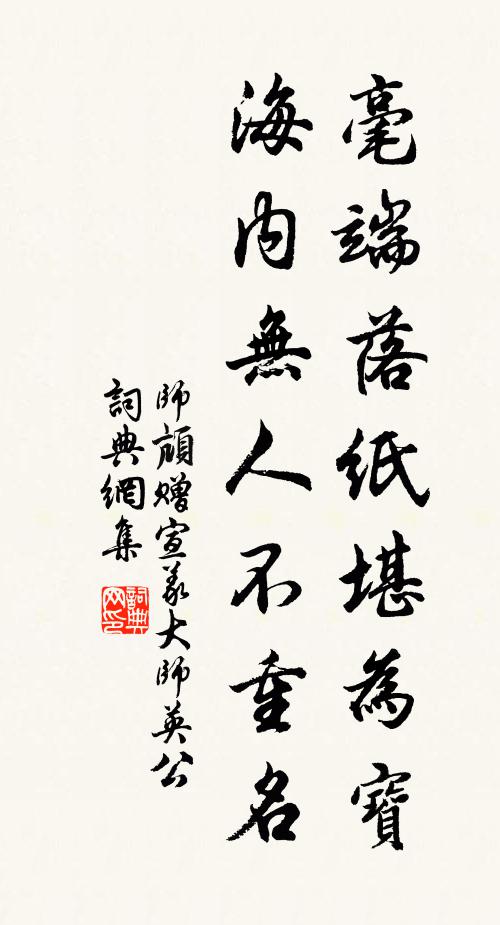 毫端落紙堪為寶
海內無人不重名
師頏贈宣義大師英公
詞典網集
詞典网印